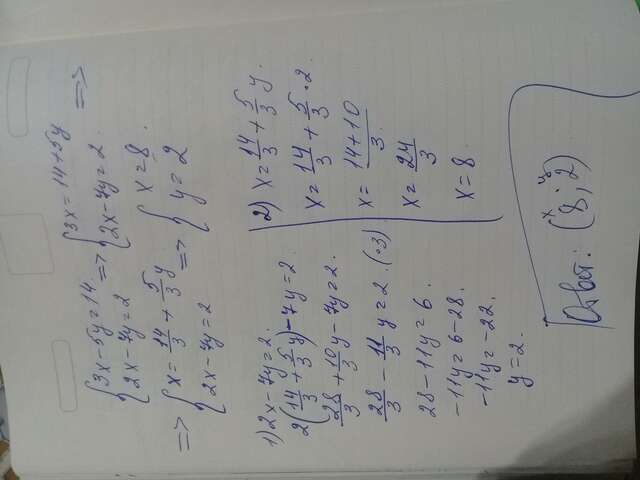 {3x-5y=14 => {3x=14+5y =>
{2x-7y=2 {2x-7y=2.
=> {x=14/3+5/3y => {x=8.
{2x-7y=2 {y=2
1) 2x-7y=2.
2(14/3+5/3y)-7y=2.
28/3+10/3y-7y=2.
28/3-11/3y=2. (·3)
28-11y=6.
-11y=6-28.
-11y=-22.
y=2.
2) x=14/3+5/3y.
x=14/3+5/3·2.
x=14+10/3.
x=24/3
x=8.
x y
Ответ: (8; 2)